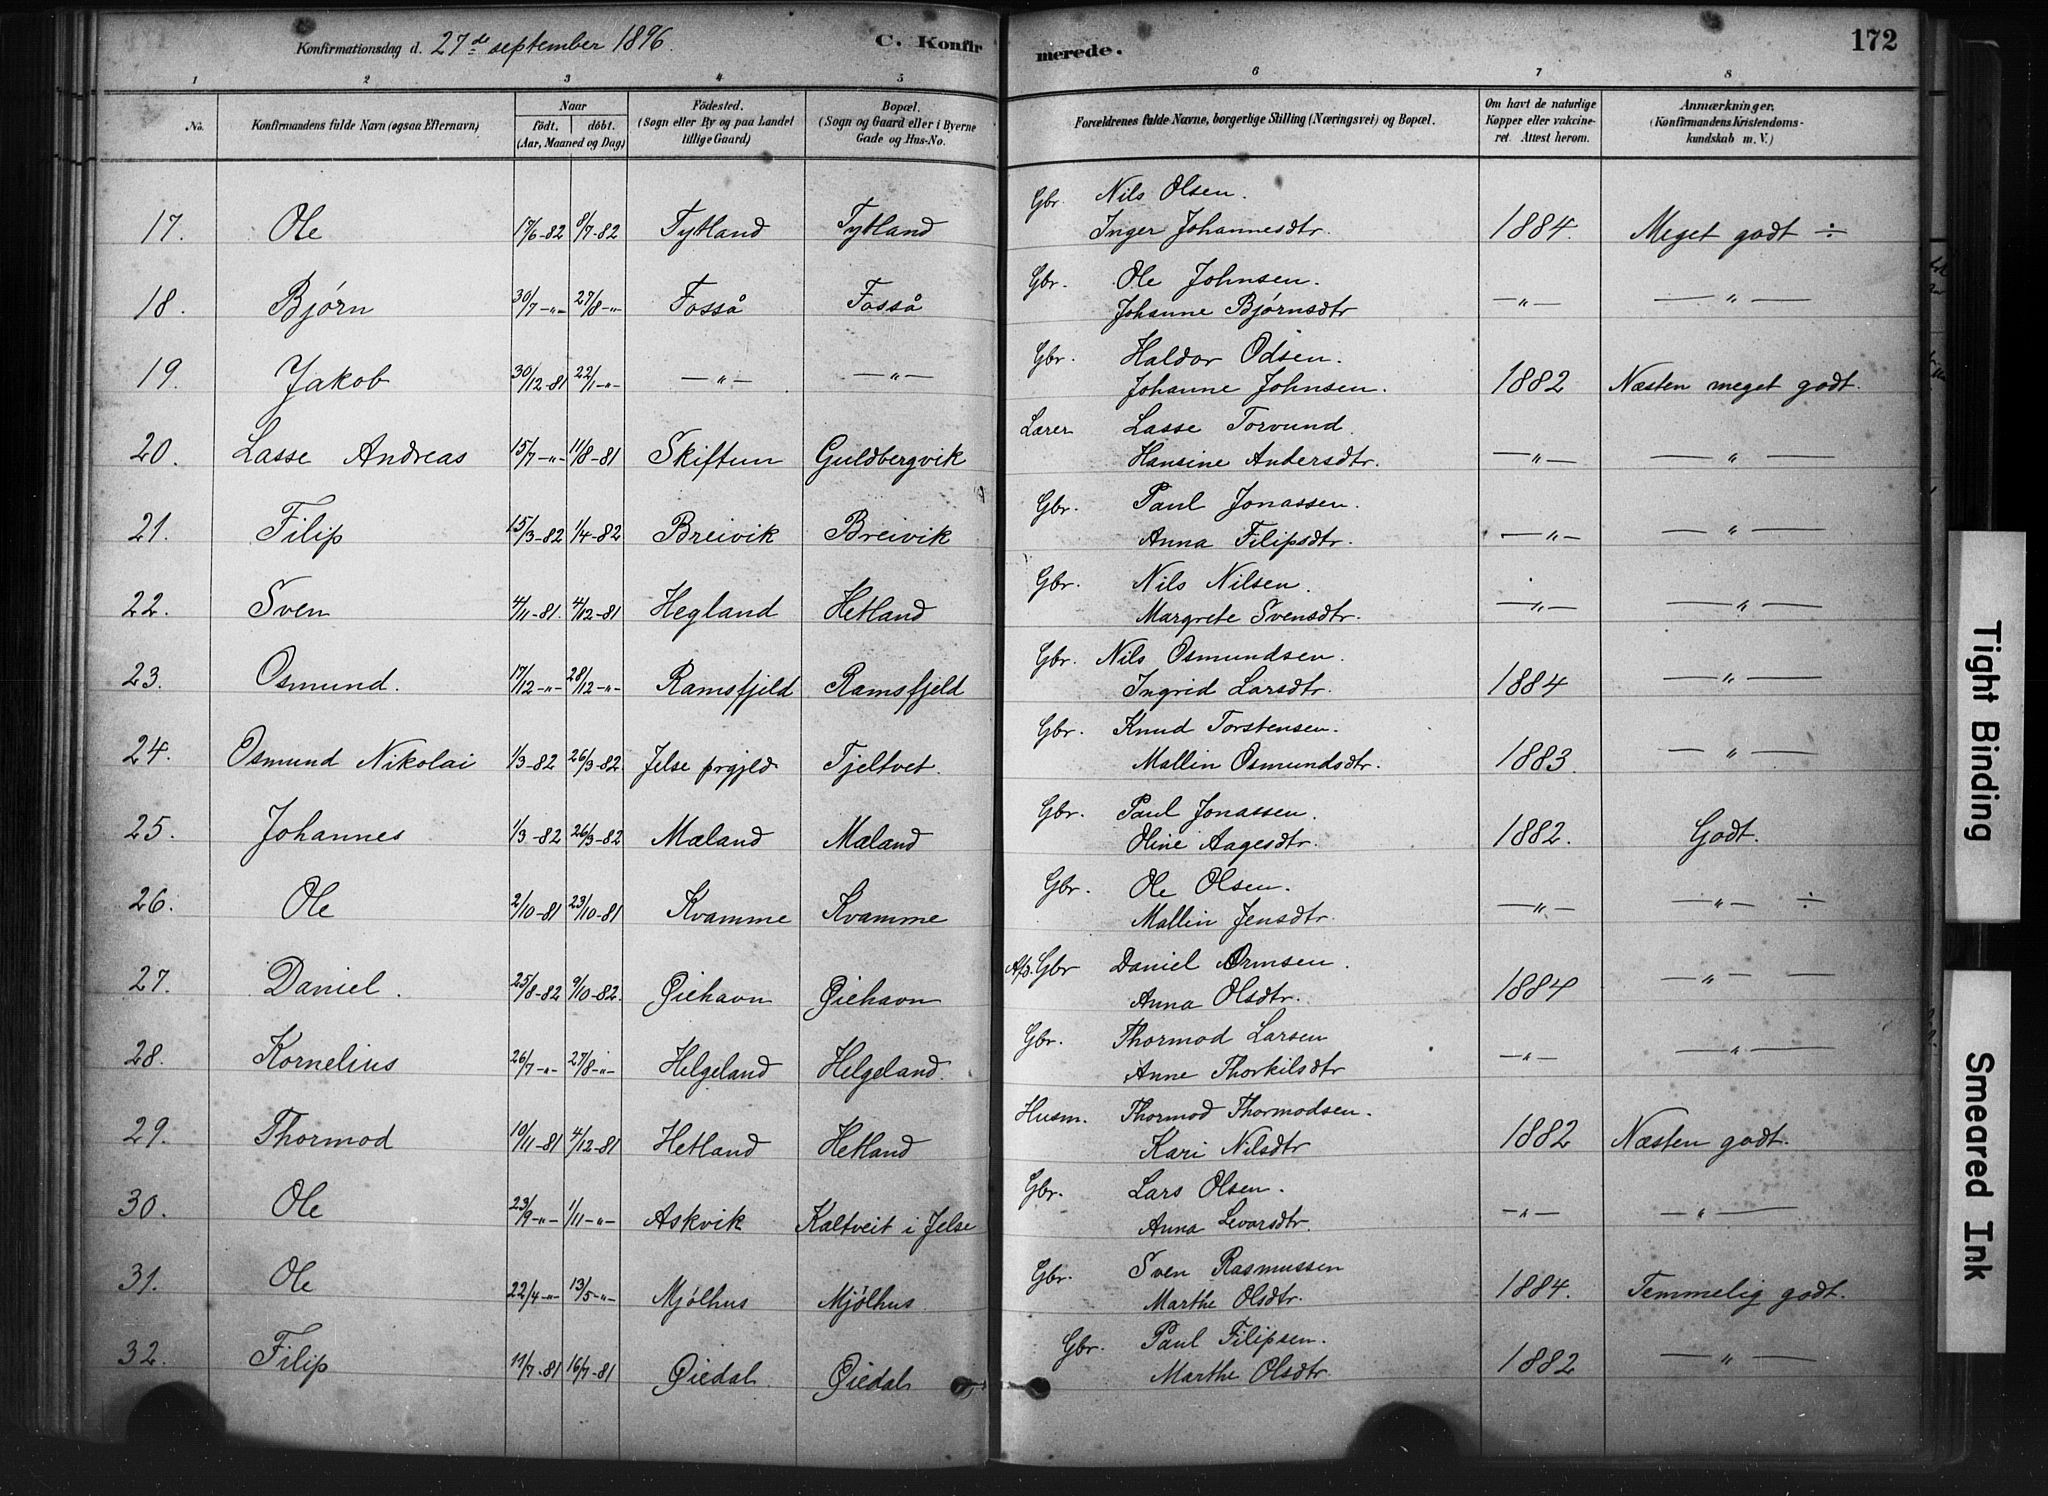 Konfirmationsdag d. 27de september 1896. C. Konfirmerede. 172
1 2 3 4 5 6 7 8
No. Konfirmandens fulde Navn (ogsaa Efternavn) Naar født. døbt. (Aar, Maaned og Dag) Fødested. (Sogn eller By og paa Landet tillige Gaard) Bopæl. (Sogn og Gaard eller i Byerne Gade og Hus-No. Forældrenes fulde Navne, borgerlige Stilling (Næringsvei) og Bopæl. Om havt de naturlige Kopper eller vakcineret. Attest herom. Anmærkninger. (Konfirmandens Kristendomskundskab m. V.)
17. Ole 17/6-82 8/7-82 Tytland Tytland Gbr. Nils Olsen. Inger Johannesdtr. 1884. Meget godt ÷
18. Bjørn 30/7 -"- 27/8 -"- Fosså Fosså Gbr. Ole Johnsen. Johanne Bjørnsdtr —"— —"—
19. Jakob 30/12-81 22/1 -"- —"— —"— Gbr. Haldor Odsen. Johanne Johnsen. 1882 Næsten meget godt.
20. Lasse Andreas 15/7 -"- 11/8-81 Skiftun Guldbergvik Lærer Lasse Torvund. Hansine Andersdtr. —"— —"—
21. Filip 15/3-82 1/4-82 Breivik Breivik Gbr. Paul Jonassen. Anna Filipsdtr. —"— —"—
22. Sven 4/11-81. 4/12-81 Hegland Hetland Gbr. Nils Nilsen. Margrete Svensdtr. —"— —"—
23. Osmund. 17/12 -"- 28/12 -"- Ramsfjeld Ramsfjeld Gbr. Nils Osmundsen. Ingrid Larsdtr. 1884 —"—
24. Osmund Nikolai 1/3-82 26/3-82. Jelse prgjld Tjeltvet. Gbr. Knud Torstensen. Mallin Osmundsdtr. 1883. —"—
25. Johannes 1/3-82 26/3-82 Mæland Mæland Gbr. Paul Jonassen. Oline Aagesdtr. 1882. Godt.
26. Ole 2/10-81 23/10-81 Kvamme Kvamme Gbr. Ole Olsen. Mallin Jensdtr. —"— —"— ÷
27. Daniel. 25/8-82 9/10-82. Øiehavn Øiehavn Afd. Gbr Daniel Ormsen. Anna Olsdtr. 1884 —"—
28. Kornelius 26/7 -"- 27/8 -"- Helgeland Helgeland. Gbr. Thormod Larsen Anne Thorkilsdtr —"— —"—
29. Thormod 19/11-81 4/12-81 Hetland Hetland Husm. Thormod Thormodsen. Kari Nilsdtr 1882 Næsten godt.
30. Ole 23/9 -"- 1/11 -"- Askvik Kaltveit i Jelse Gbr. Lars Olsen. Anna Levardtr. —"— —"—
31. Ole 22/4 -"- 13/5 -"- Mjølhus Mjølhus Gbr. Sven Rasmussen Marthe Olsdtr. 1884. Temmelig godt.
32. Filip 11/7-81 16/7-81 Øiedal. Øiedal Gbr. Paul Filipsen. Marthe Olsdtr. 1882 —"—
Tight Binding
Smeared Ink